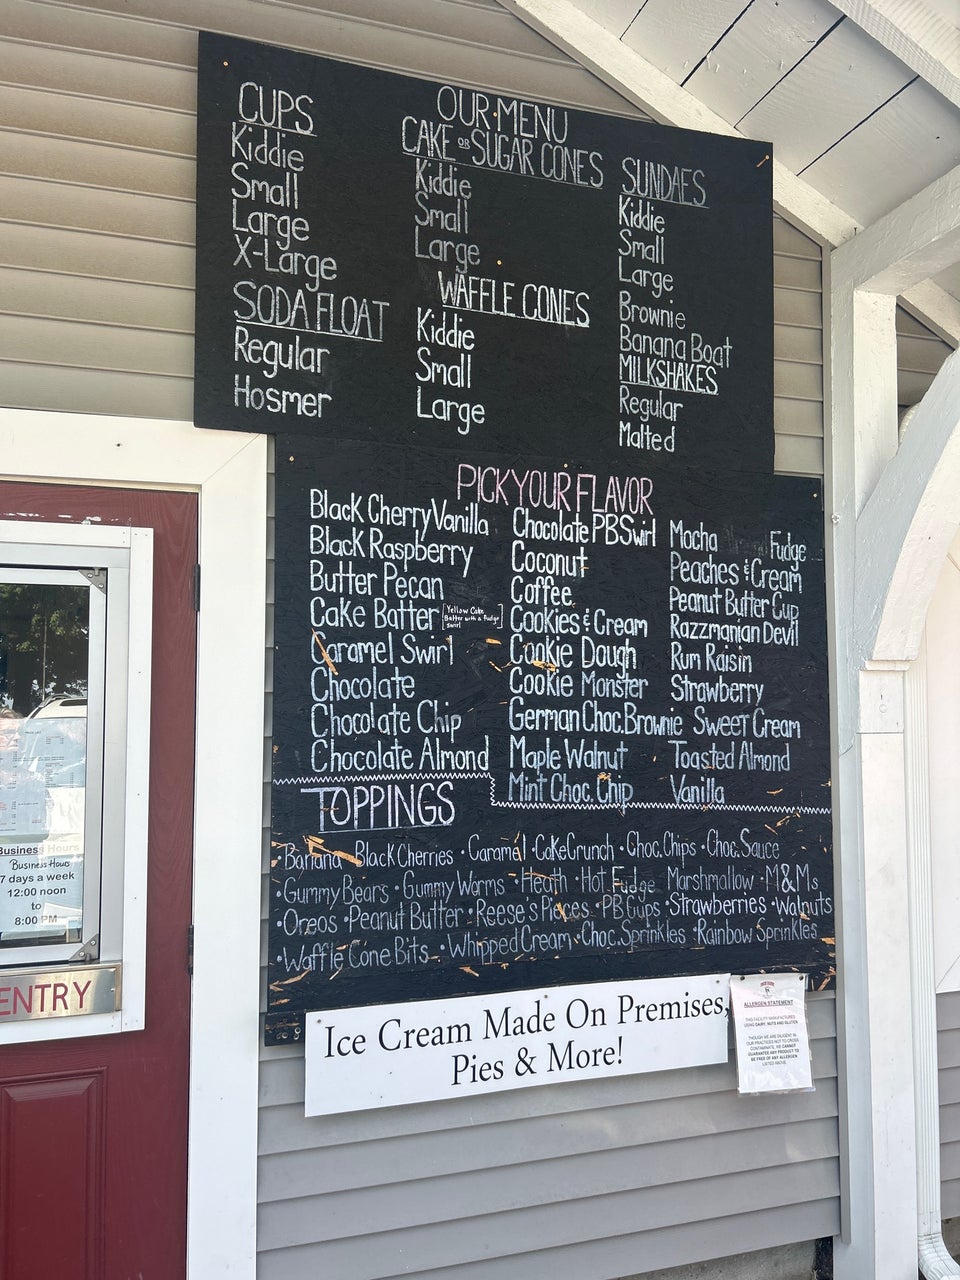 OUR MENU
CUPS
Kiddie
Small
Large
X-Large
SODA FLOAT
Regular
Hosmer
CAKE OR SUGAR CONES
Kiddie
Small
Large
WAFFLE CONES
Kiddie
Small
Large
SUNDAES
Kiddie
Small
Large
Brownie
Banana Boat
MILKSHAKES
Regular
Malted
PICK YOUR FLAVOR
Black Cherry Vanilla
Black Raspberry
Butter Pecan
Cake Batter [Yellow Cake
Batter with a fudge
swirl]
Caramel Swirl
Chocolate
Chocolate Chip
Chocolate Almond
Chocolate PB Swirl
Coconut
Coffee
Cookies & Cream
Cookie Dough
Cookie Monster
German Choc. Brownie
Maple Walnut
Mint Choc. Chip
Mocha Fudge
Peaches & Cream
Peanut Butter Cup
Razzmanian Devil
Rum Raisin
Strawberry
Sweet Cream
Toasted Almond
Vanilla
TOPPINGS
•Banana •Black Cherries •Caramel •Cake Crunch •Choc. Chips •Choc. Sauce
•Gummy Bears •Gummy Worms •Heath •Hot Fudge Marshmallow •M&Ms
•Oreos •Peanut Butter •Reese's Pieces •PB Cups •Strawberries •Walnuts
•Waffle Cone Bits •Whipped Cream •Choc. Sprinkles •Rainbow Sprinkles
Ice Cream Made On Premises,
Pies & More!
ALLERGEN STATEMENT
THIS FACILITY MANUFACTURES
USING DAIRY, NUTS AND GLUTEN
THOUGH WE ARE DILIGENT IN
OUR PRACTICES NOT TO CROSS
CONTAMINATE, WE CANNOT
GUARANTEE ANY PRODUCT TO
BE FREE OF ANY ALLERGEN
LISTED ABOVE
Business Hours
Business Hours
7 days a week
12:00 noon
to
8:00 PM
ENTRY